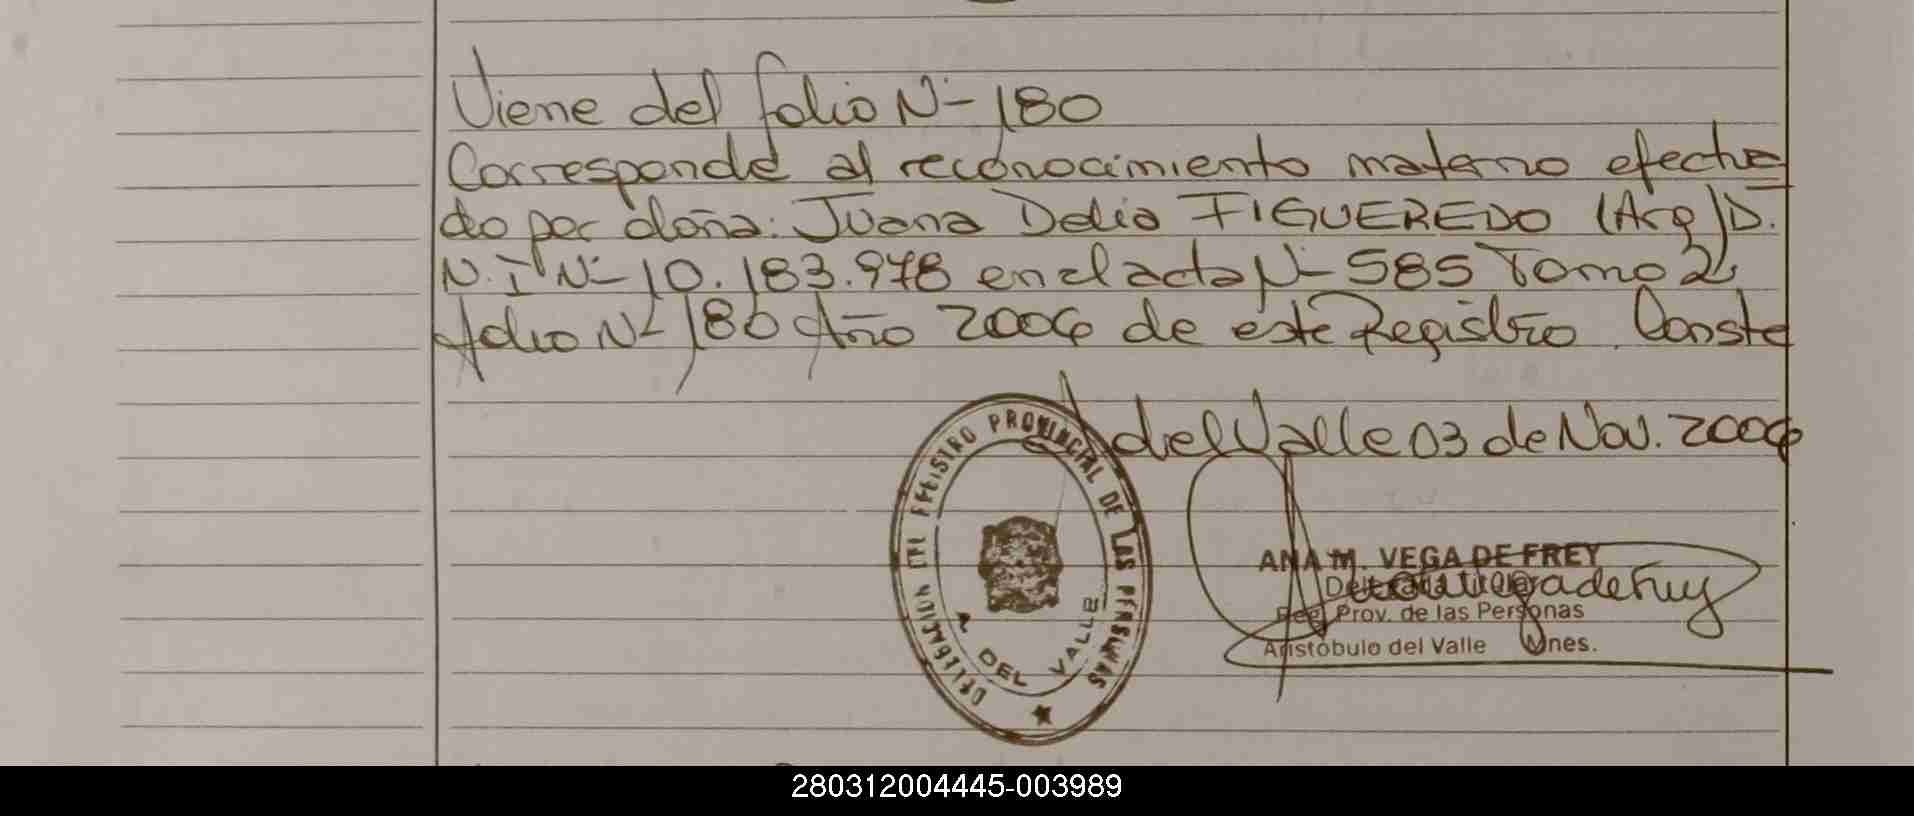 Viene del folio N- 180
Corresponde al reconocimiento materno efectua
do por doña: Juana Delia FIGUEREDO (Arg) D.
N.I N- 10.183.978 en el acta N- 585 Tomo 2,
folio N- 180 Año 2006 de este Registro. Conste
A del Valle 03 de Nov. 2006
DELEGACION DEL REGISTRO PROVINCIAL DE LAS PERSONAS
A. DEL VALLE
ANA M. VEGA DE FREY
Reg. Prov. de las Personas
Aristóbulo del Valle Mnes.
280312004445-003989